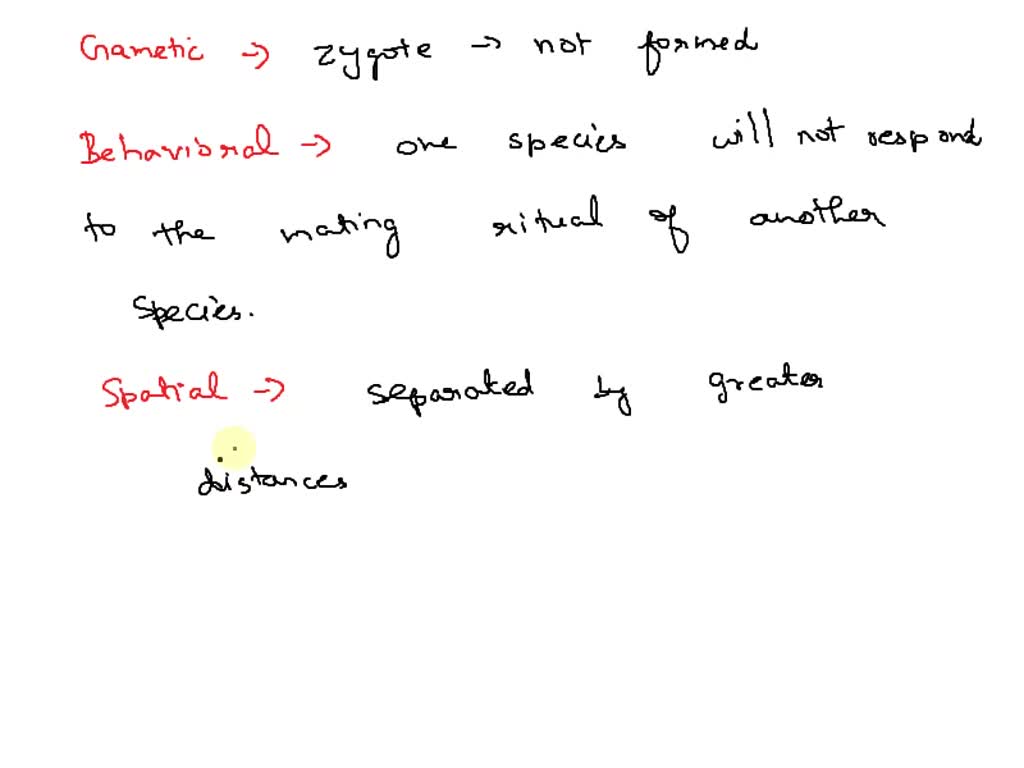 Gametic → zygote → not formed
Behavioral → one species will not respond
to the mating ritual of another
species.
Spatial → separated by greater
distances